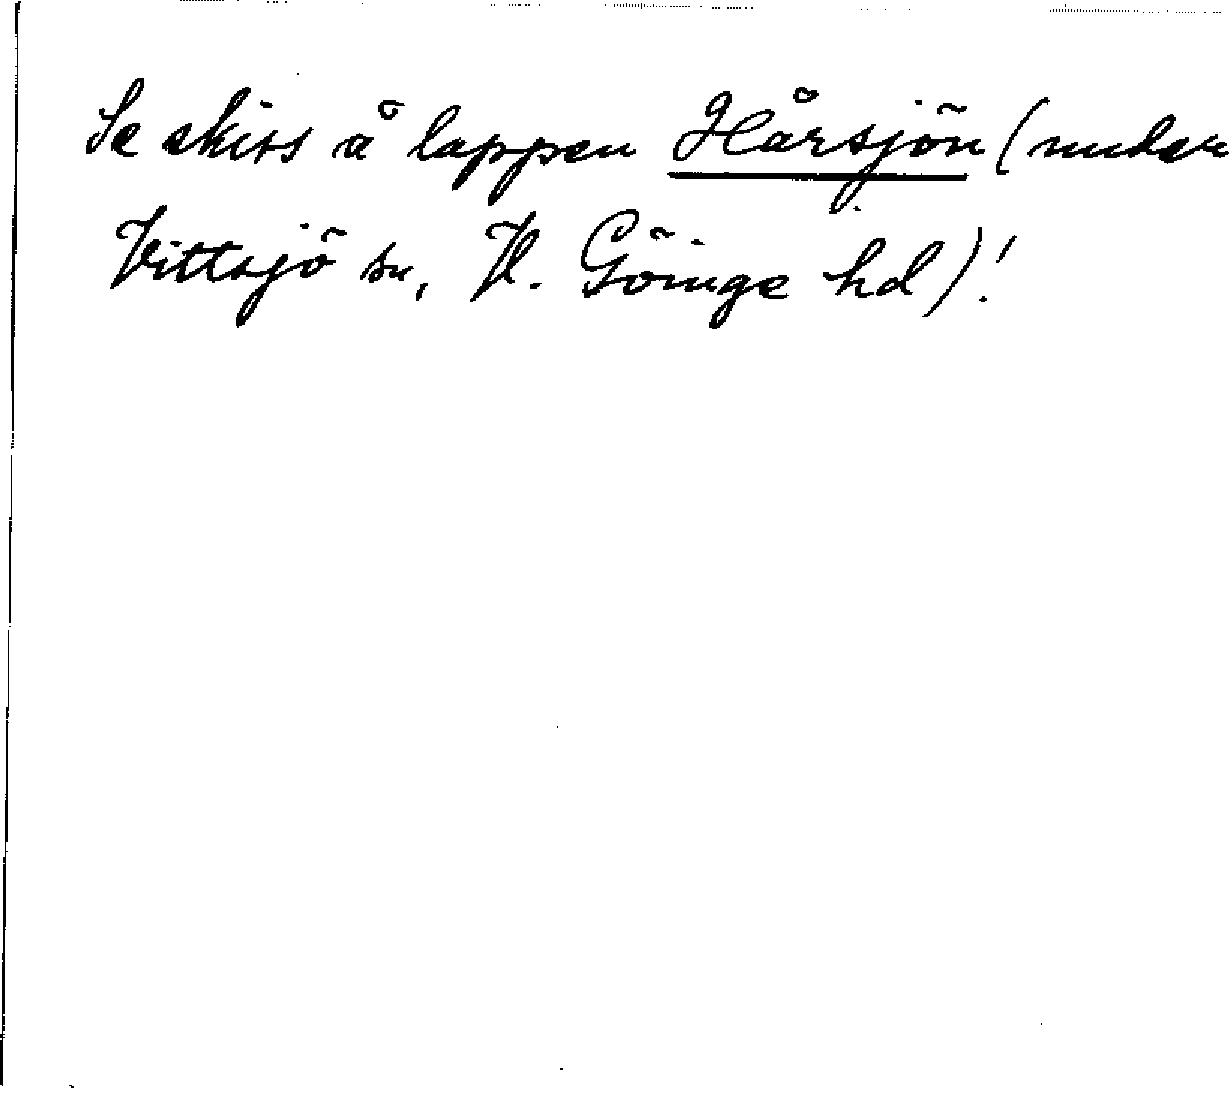 Se skiss å lappen Hårsjön (under
Vittsjö sn, V. Göinge hd)!